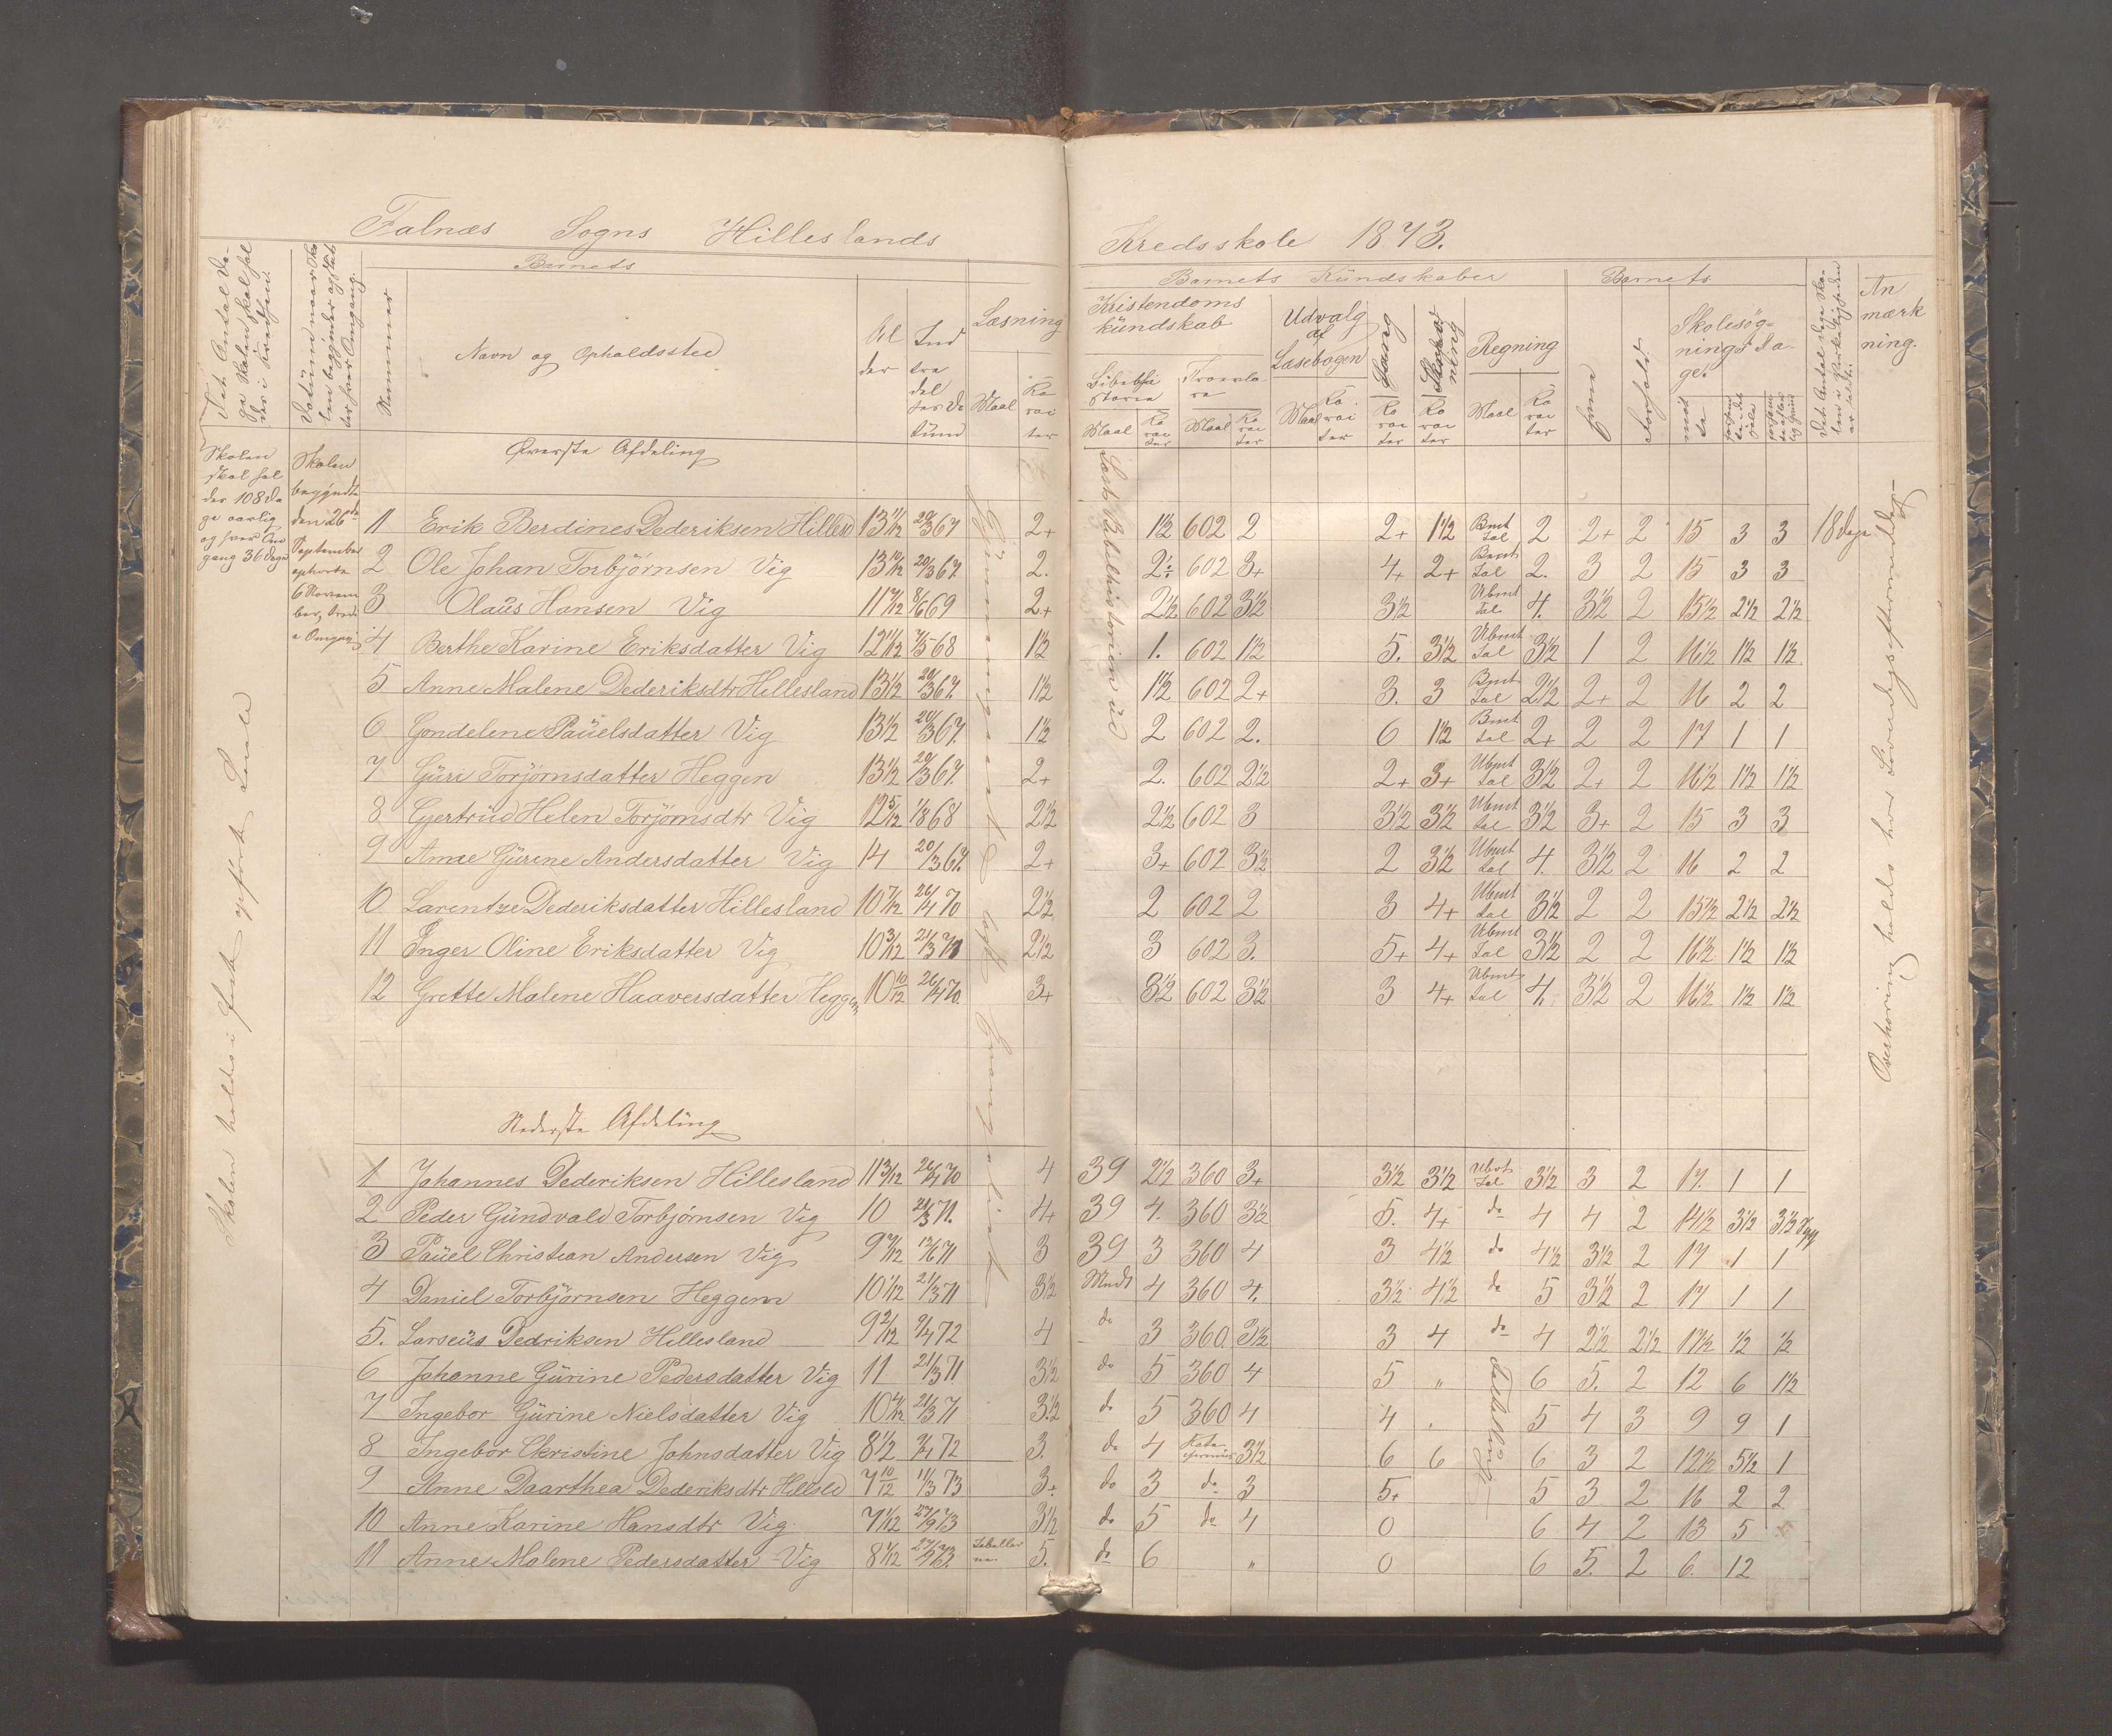 Falnæs Sogns Hilleslands Kredsskole 1873.
Barnets
Barnets Kündskaber
Barnets
Det Antal Dage Skolen skal holdes i Kredsen.
Datüm naar Skolen begynder og slutter hver Omgang.
Nummer
Navn og Opholdssted
Alder
Indtrædelses Datüm
Læsning
Maal
Karakter
Kristendomskündskab
Bibelhistorie
Forklare
Udvalg af Læsebogen
Sang
Skrivning
Regning
Maal Karakter
Evne
Forhold
Skolesøgningsdage.
mødte
Det Antal Dage Skolen i Virkeligheden er holdt.
Anmærkning.
Skolen skal holdes 108 Dage aarlig og hver Omgang 36 Dage
Skolen begyndte den 26de September ophørte 6 November, Tredie Omgang
Øverste Afdeling
1 Erik Berdines Dederiksen Hillesl 13 11/12 20/3 67 2+ 1½ 602 2 2+ 1½ Bmt Tal 2 2+ 2 15 3 3 18 Dage
2 Ole Johan Torbjørnsen Vig 13 10/12 20/3 67. 2. 2÷ 602 3+ 4+ 2+ Bmt Tal 2. 3 2 15 3 3
3 Olaüs Hansen Vig 11 9/12 8/6 69 2+ 2½ 602 3½ 3½ Ubmt Tal 4. 3½ 2 15½ 2½ 2½
4 Berthe Karine Eriksdatter Vig 12 11/12 7/5 68 1½ 1. 602 1½ 5. 3½ Ubmt Tal 3½ 1 2 16½ 1½ 1½
5 Anne Malene Dederiksdtr Hillesland 13½ 20/3 67. 1½ 1½ 602 2+ 3. 3 Bmt Tal 2½ 2+ 2 16 2 2
6 Gondelene Paüelsdatter Vig 13½ 20/3 67. 1½ 2 602 2. 6 1½ Bmt Tal 2+ 2 2 17 1 1
7 Güri Torjørnsdatter Heggen 13½ 20/3 67. 2+ 2. 602 2½ 2+ 3+ Ubmt Tal 3½ 2+ 2 16½ 1½ 1½
8 Gjertrüd Helen Torjørnsdtr Vig 12 5/12 1/8 68 2½ 2½ 602 3 3½ 3½ Ubmt Tal 3½ 3+ 2 15 3 3
9 Anne Gürine Andersdatter Vig 14 20/3 67. 2+ 3+ 602 3½ 2 3½ Ubmt Tal 4. 3½ 2 16 2 2
10 Larentze Dederiksdatter Hillesland 10 7/12 26/4 70 2½ 2 602 2 3 4+ Ubmt Tal 3½ 2 2 15½ 2½ 2½
11 Inger Oline Eriksdatter Vig 10 3/12 21/3 71 2½ 3 602 3. 5+ 4+ Ubmt Tal 3½ 2 2 16½ 1½ 1½
12 Grette Malene Haaversdatter Heggen 10 10/12 26/4 70 3+ 3½ 602 3½ 3 4+ Ubmt Tal 4. 3½ 2 16½ 1½ 1½
Nederste Afdeling
1 Johannes Dederiksen Hillesland 11 3/12 26/4 70 4 39 2½ 360 3+ 3½ 3½ Ubvt Tal 3½ 3 2 17. 1 1
2 Peder Gündvald Torbjørnsen Vig 10 21/3 71. 4+ 39 4. 360 3½ 5. 4+ do 4 4 2 14½ 3½ 3½ Syg
3 Paüel Christian Andersen Vig 9 9/12 12/6 71 3 39 3 360 4 3 4½ do 4½ 3½ 2 17 1 1
4 Daniel Torbjørnsen Heggem 10 1/12 21/3 71 3½ Mndt 4 360 4. 3½ 4½ do 5 3½ 2 17 1 1
5. Larseüs Dedriksen Hillesland 9 2/12 9/4 72 4 do 3 360 3½ 3 4 do 4 2½ 2½ 17½ ½ ½
6 Johanne Gürine Pedersdatter Vig 11 21/3 71 3½ do 5 360 4 5 " 6 5. 2 12 6 1½
7 Ingebor Gürine Nielsdatter Vig 10 4/12 21/3 71 3½ do 5 360 4 4 5 4 3 9 9 1
8 Ingebor Christine Johnsdatter Vig 8½ 9/4 72 3. do 4 3½ 6 6 6 3 2 12½ 5½ 1
9 Anne Daarthea Dederiksdtr Hillsld 7 10/12 11/3 73 3+ do 3 do 3 5+ 5 3 2 16 2 2
10 Anne Karine Hansdtr Vig. 7 1/12 27/9 73 3½ do 5 do 4 0 6 4 2 13 5
11 Anne Malene Pedersdatter Vig 8 1/12 Tabellerne 5. do 6 " 0 6 5. 2 6. 12
Skolen holdes i faste opførte Locale
Læst Bibelhistorien üd